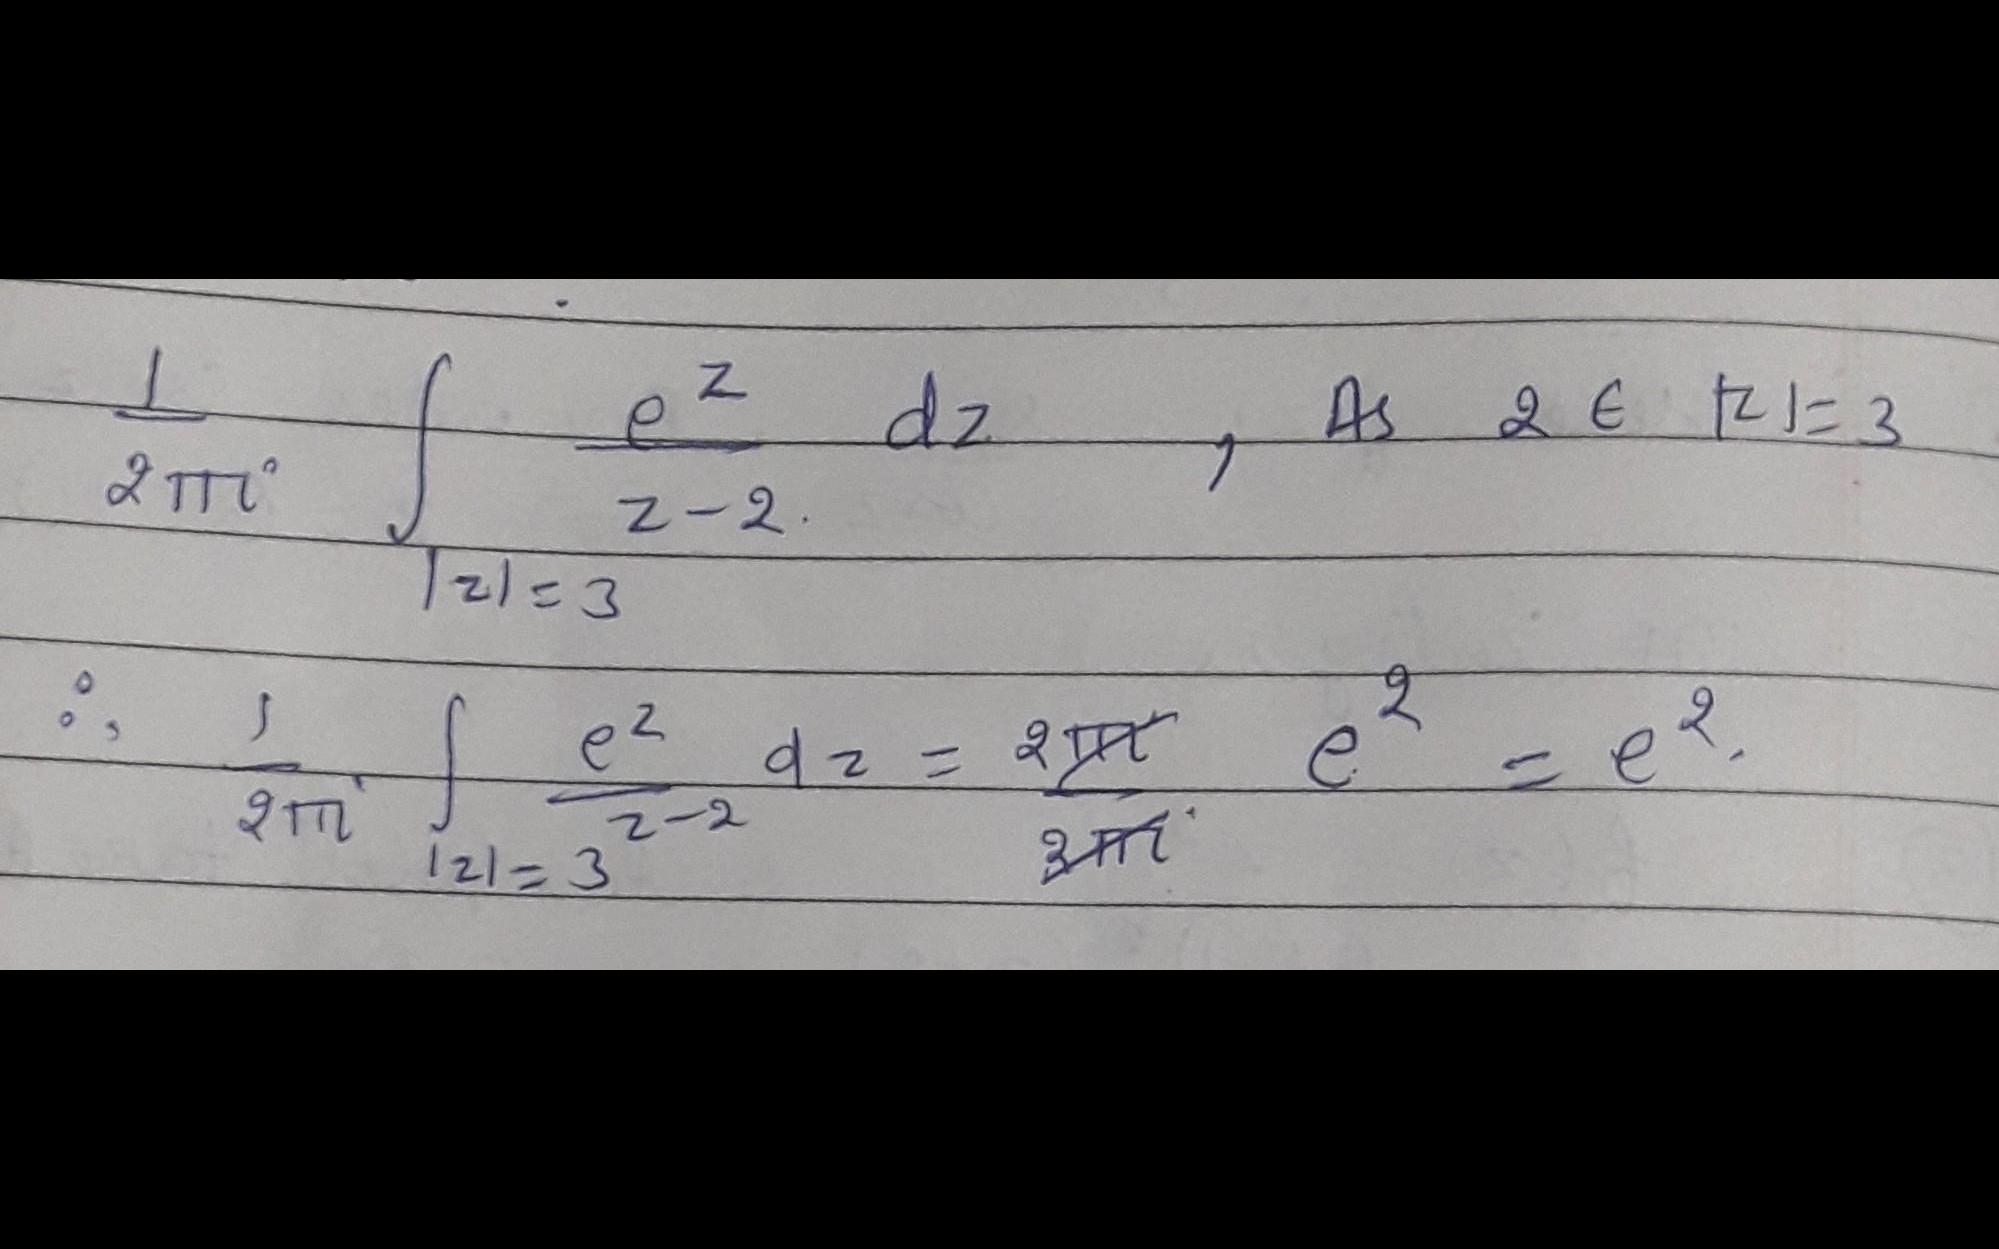 1/2πi ∫_{|z|=3} e^z/(z-2) dz , As 2 ∈ |z|=3
∴, 1/2πi ∫_{|z|=3} e^z/(z-2) dz = 2πi/2πi e^2 = e^2.